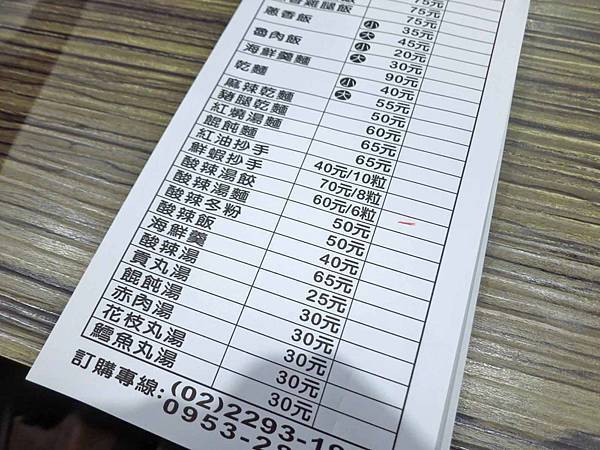 75元
75元
香雞腿飯 75元
蔥香飯 小 35元
大 45元
魯肉飯 小 20元
大 30元
海鮮羹麵 90元
乾麵 小 40元
大 55元
麻辣乾麵 50元
豬腿乾麵 60元
紅燒湯麵 65元
餛飩麵 65元
紅油抄手 40元/10粒
鮮蝦抄手 70元/8粒
酸辣湯餃 60元/6粒
酸辣湯麵 50元
酸辣冬粉 50元
酸辣飯 40元
海鮮羹 65元
酸辣湯 25元
貢丸湯 30元
餛飩湯 30元
赤肉湯 30元
花枝丸湯 30元
鱈魚丸湯 30元
訂購專線:(02)2293-18
0953-28